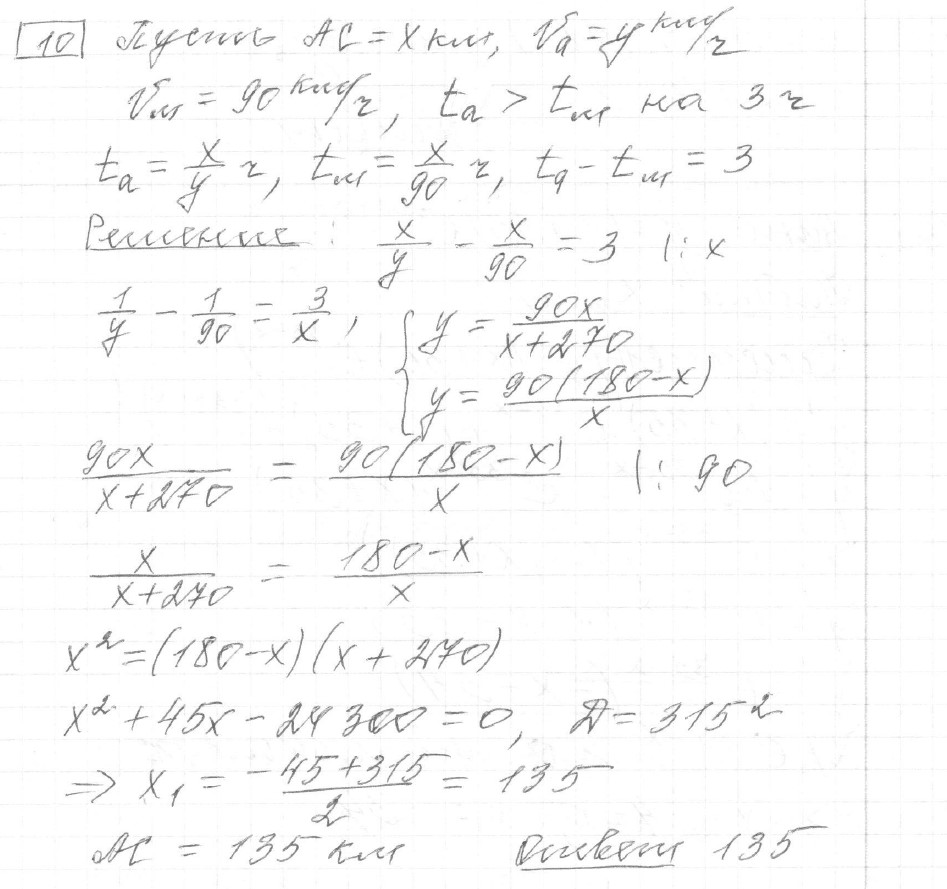 10 Пусть AC = x км, Vа = y км/ч
Vм = 90 км/ч, tа > tм на 3 ч
tа = x/y ч, tм = x/90 ч, tа - tм = 3
Решение: x/y - x/90 = 3 |: x
1/y - 1/90 = 3/x, { y = 90x/(x+270)
y = 90(180-x)/x
90x/(x+270) = 90(180-x)/x |: 90
x/(x+270) = (180-x)/x
x² = (180-x)(x+270)
x² + 45x - 24300 = 0, Д = 315²
=> x₁ = (-45+315)/2 = 135
AC = 135 км Ответ 135